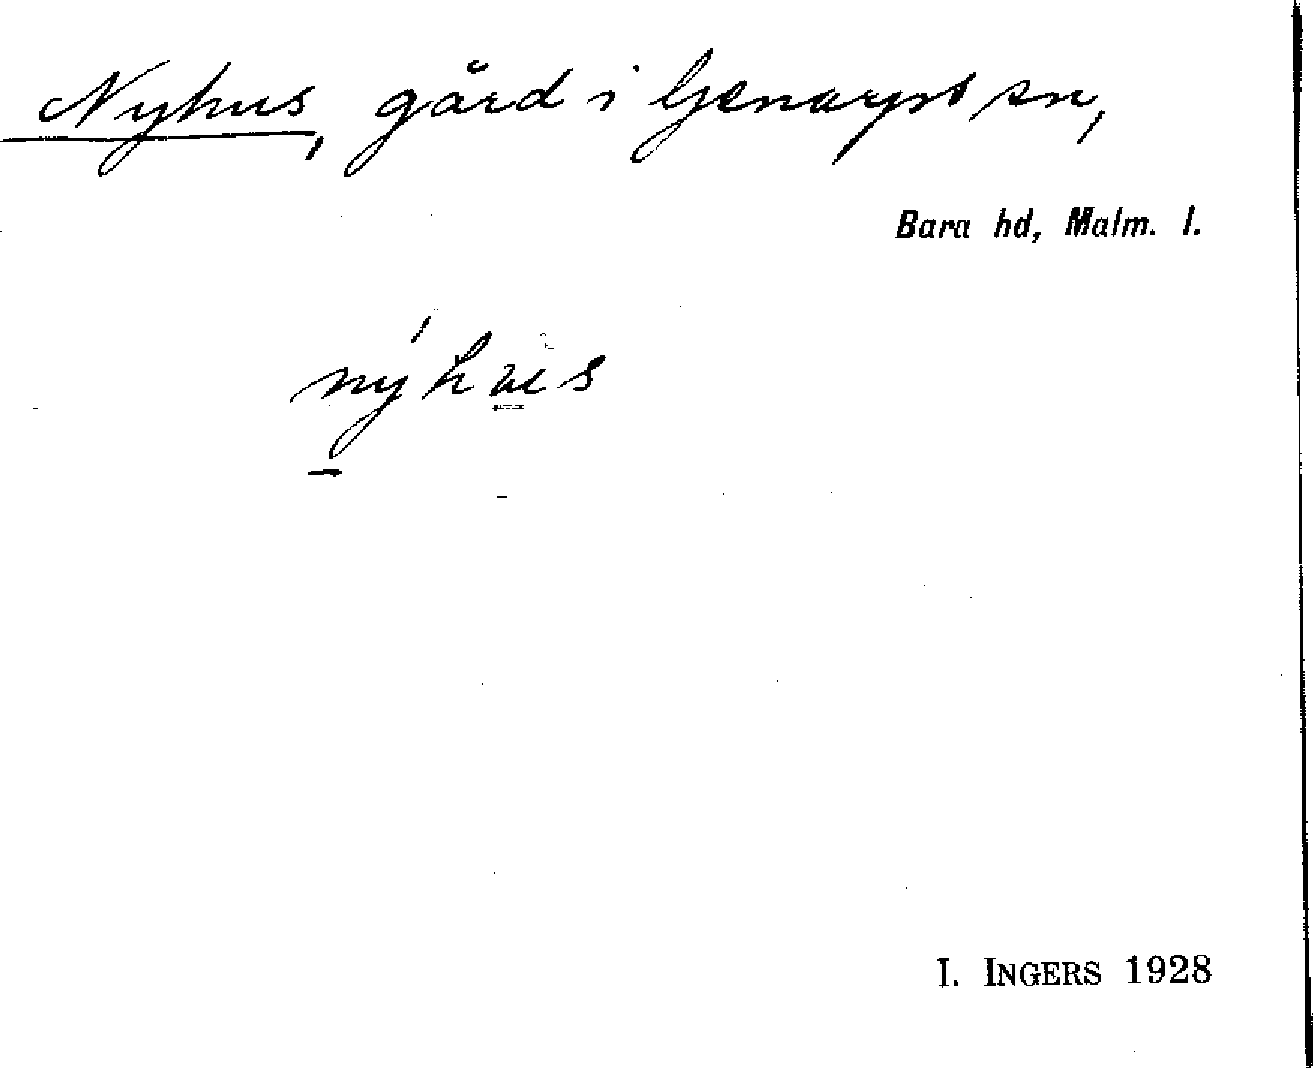 Nyhus, gård i Genarps sn,
Bara hd, Malm. l.
nýhus
I. INGERS 1928